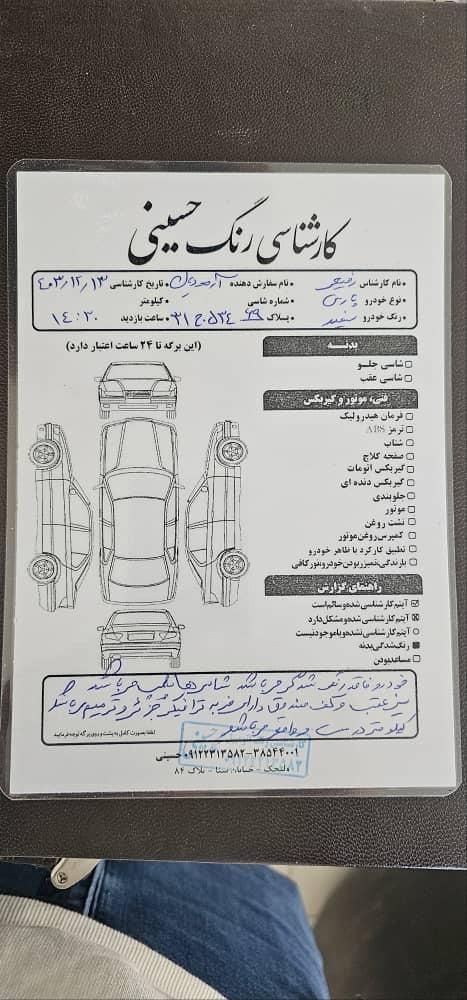 کارشناسی رنگ حسینی
• نام کارشناس رفیعی • نام سفارش دهنده • تاریخ کارشناسی ۴۰۳/۱۲/۱۳
• نوع خودرو پارس • شماره شاسی • کیلومتر
• رنگ خودرو سفید • پلاک • ساعت بازدید ۱۴:۲۰
بدنــه
(این برگه تا ۲۴ ساعت اعتبار دارد)
شاسی جلــو
شاسی عقب
فنی، موتور و گیربکس
فرمان هیدرولیک
ترمز ABS
شتاب
صفحه کلاچ
گیربکس اتومات
گیربکس دنده ای
جلوبندی
موتور
نشت روغن
کمپرس روغن موتور
تطبیق کارکرد با ظاهر خودرو
بارندگی،تمیزنبودن‌خودرو،نورکافی
راهنمای گزارش
☑ آیتم کارشناسی شده و سالم است
☒ آیتم کارشناسی شده و مشکل دارد
○ آیتم کارشناسی نشده و یا موجود نیست
■ رنگ شدگی بدنه
□ مساعد بودن
خودرو فاقد رنگ شدگی می باشد شاسی ها پلمپ می باشد
عقب و کف صندوق دارای ضربه ترافیکی جزئی و ترمیم می باشد
کیلومتر درست و واقعی می باشد
لطفا بصورت کامل به پشت و روی برگه توجه فرمایید
۰۹۱۲۲۳۱۳۵۸۲-۳۸۵۴۴۰۰۱ حسینی
پلاک ۸۴